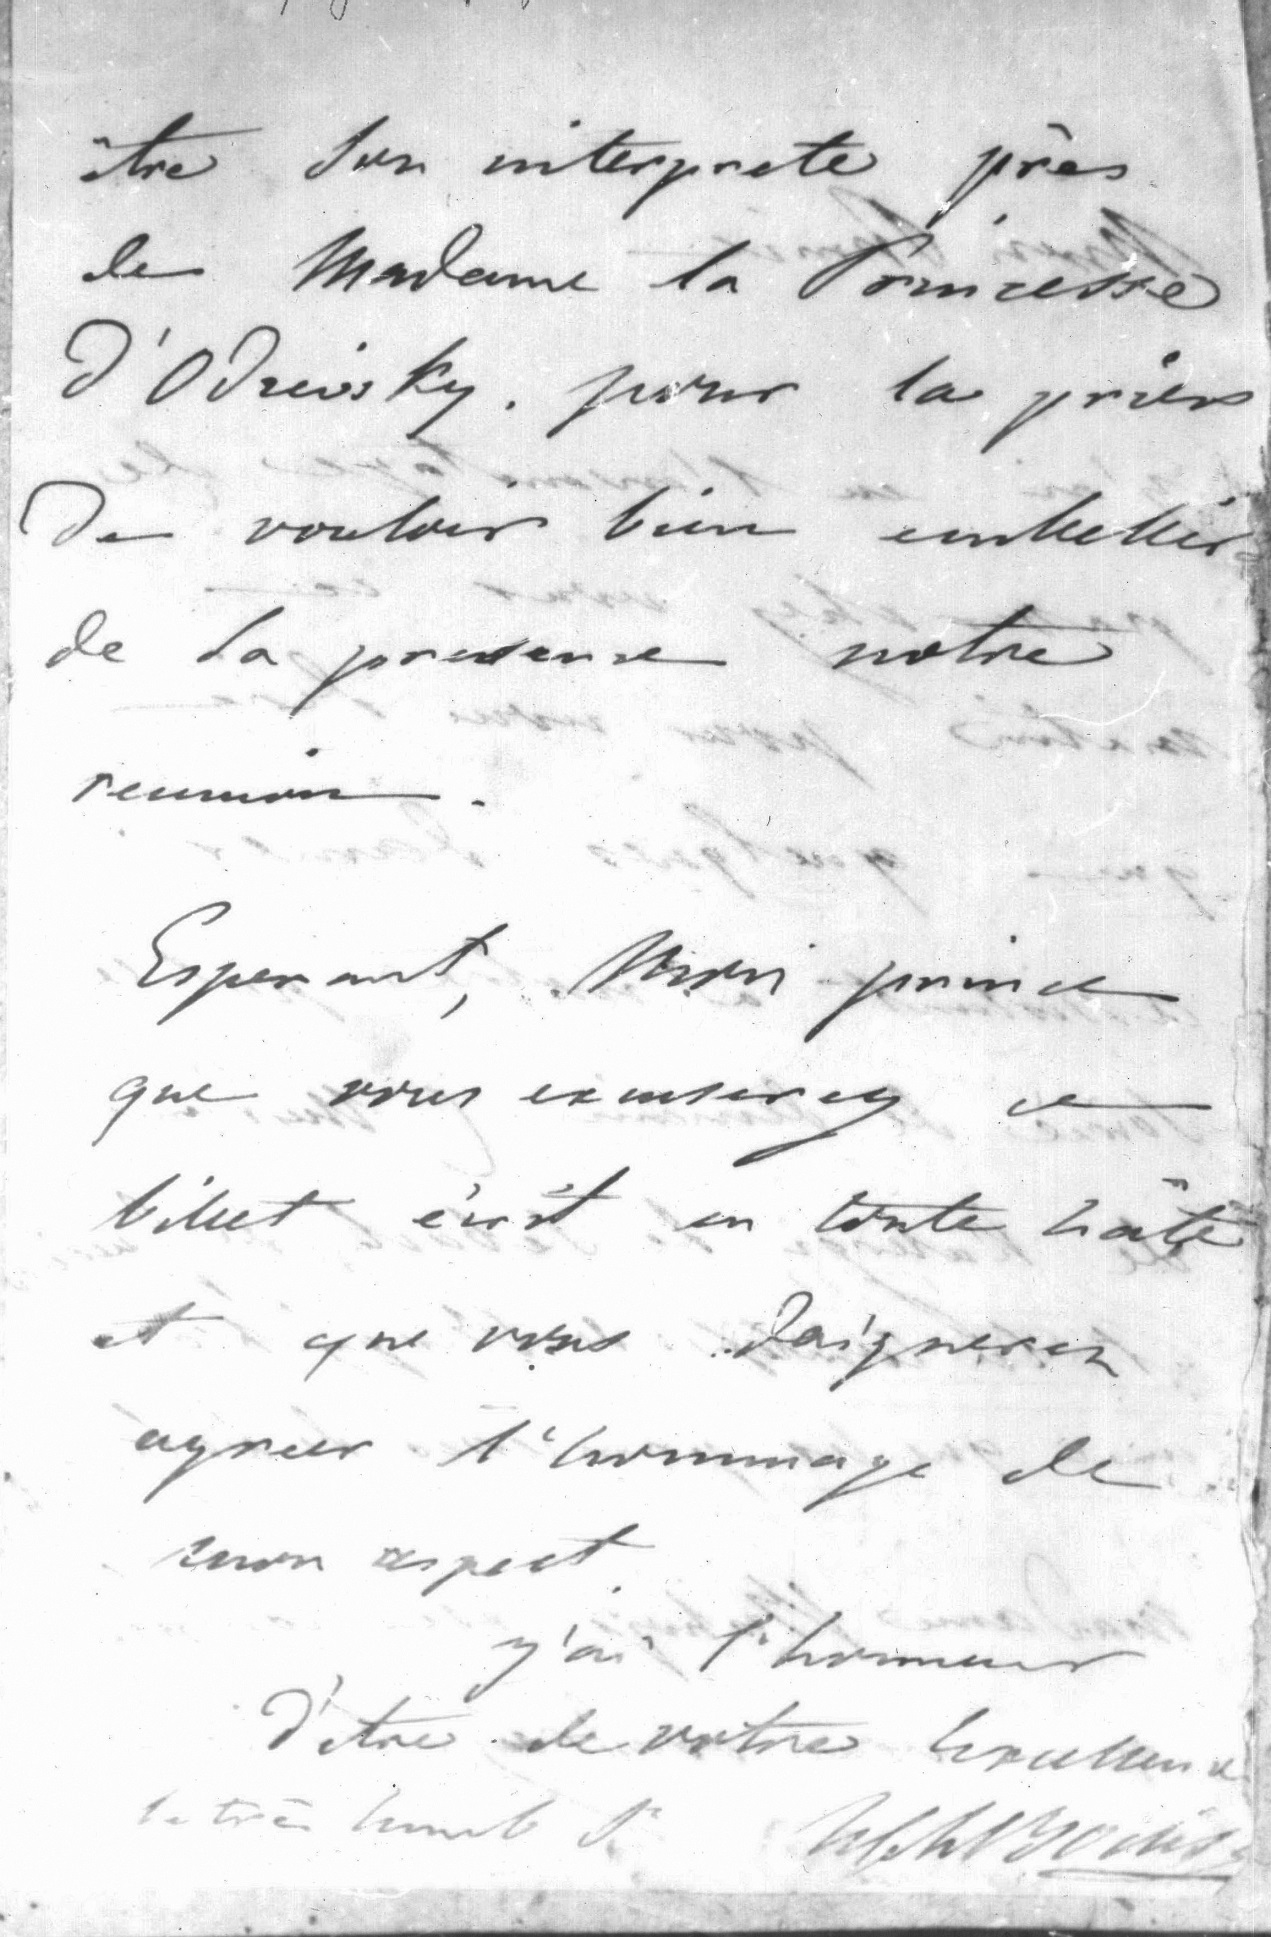 être son interprete près
de Madame la Princesse
d'Odoeiosky. pour la prier
de vouloir bien embellir
de sa presence notre
reunion.
Esperant, Mon prince
que vous excuserez ce
billet écrit en toute hâte
et que vous daignerez
agreer l'hommage de
mon respect.
j'ai l'honneur
d'être de votre Excellence
le très humb Sr